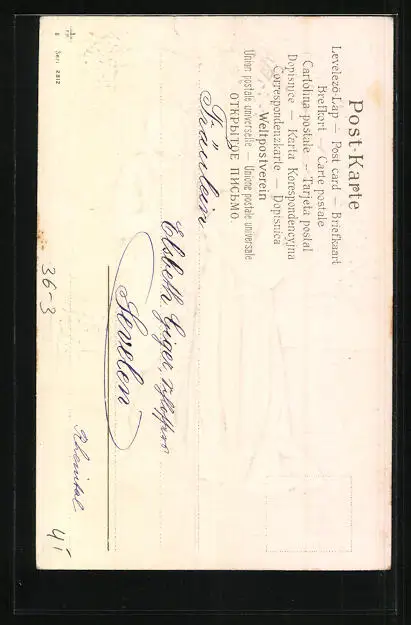 Post-Karte
Levelező-Lap — Post card — Briefkaart
Brefkort — Carte postale
Cartolina postale — Tarjeta postal
Dopisnice — Karta Korespondencyjna
Correspondenzkarte — Dopisnica
Weltpostverein
Union postale universelle — Unione postale universale
ОТКРЫТОЕ ПИСЬМО.
Fräulein
Elsbeth Giger,
Sevelen
Rheintal
36-3
4/-
Seri 2812